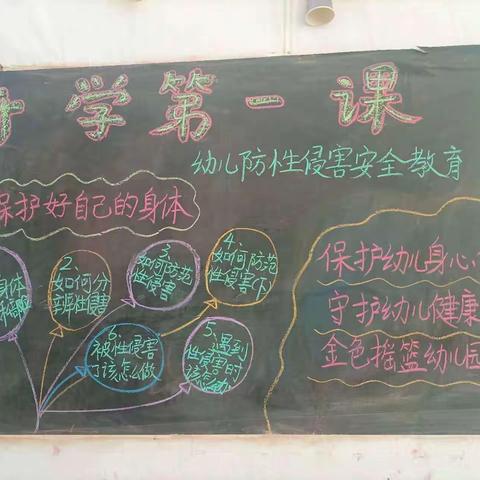 开学第一课
幼儿防性侵害安全教育
保护好自己的身体
身体
2、
如何分
辨性侵害
3、
如何防范
性侵害
4、
如何防范
性侵害下
5、遇到
性侵害时
该怎么做
6、
被性侵害
了该怎么做
保护幼儿身心
守护幼儿健康
金色摇篮幼儿园